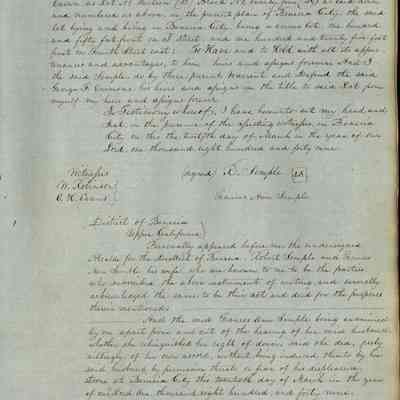 known as Lot No thirteen (13) Block No twenty five (25) as laid down
and numbered as above in the present plan of Benicia City the said
lot lying and being in Benicia City being a corner lot one hundred
and fifty feet front on D Street and one hundred and twenty five feet
front on Fourth Street east. To Have and to Hold with all its appur-
tenances and advantages, to him heirs and assigns forever And I
the said Semple do by these present Warrant and Defend the said
George F. his heirs and assigns in the title to said Lot from
myself my heirs and assigns forever
In Testimony whereof, I have hereunto set my hand and
Seal in the presence of the attesting witnesses in Benicia
City on this the twelfth day of March in the year of our
Lord one thousand eight hundred and forty nine
Witnesses signed R. Semple LS
W. Robinson
C. H. Evans Frances Ann Semple
District of Benicia
Upper California
Personally appeared before me the undersigned
Alcalde for the District of Benicia, Robert Semple and Frances
Ann Semple his wife, who are known to me to be the parties
who executed the above instrument of writing and severally
acknowledged the same to be their act and deed for the purpose
therein mentioned.
And the said Frances Ann Semple being examined
by me apart from and out of the hearing of her said husband
whether she relinquished her right of dower, said she did, freely
willingly of her own accord, without being induced thereto by her
said husband by persuasion threats or fear of his displeasure.
Done at Benicia City this twentieth day of March in the year
of our Lord one thousand eight hundred and forty nine.